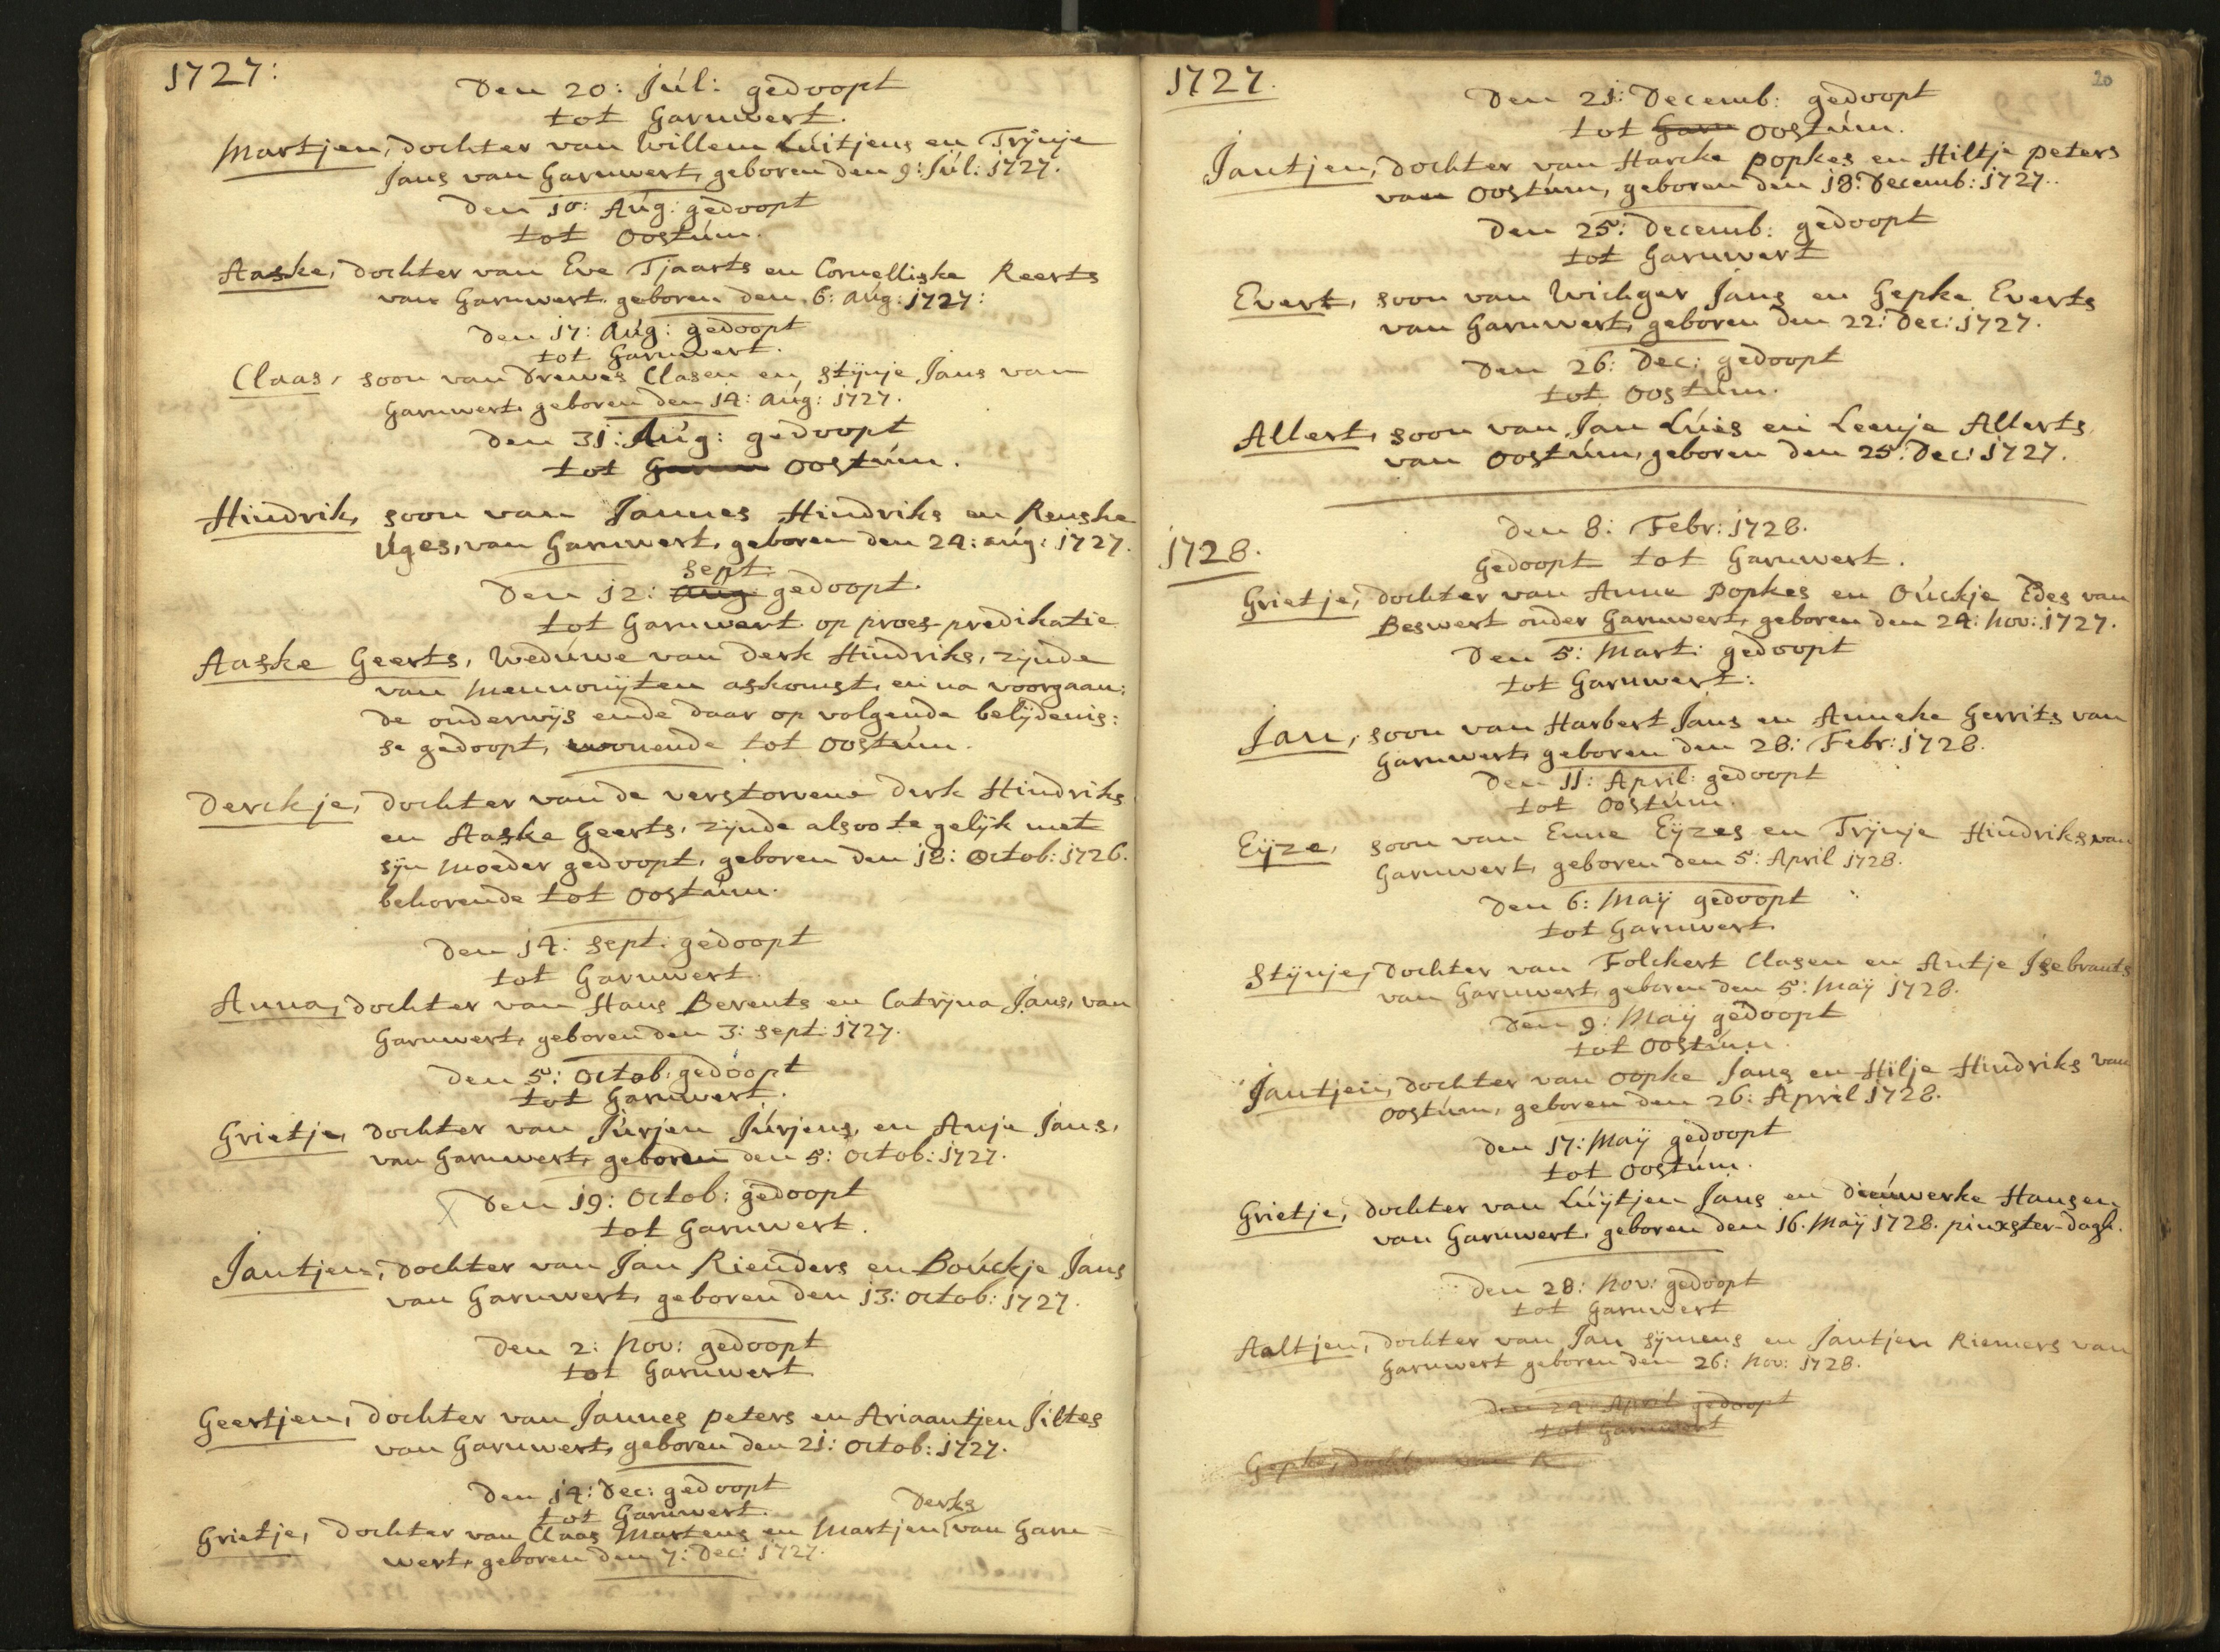 1727:
Den 20: Júl: gedoopt
tot Garnwert.
Martjen, dochter van Willem Lúitjens en Trÿnje
Jans van Garnwert, geboren den 9: Júl: 1727.
Den 10: Aúg: gedoopt
tot Oostúm.
Aaske, dochter van Eve Tjaarts en Cornelliske Reerts
van Garnwert geboren den 6: aúg: 1727:
Den 17: Aúg: gedoopt
tot Garnwert.
Claas, soon van Drewes Clasen en Stÿnje Jans van
Garnwert, geboren den 14: aúg: 1727.
Den 31: Aúg: gedoopt
tot Garnw Oostúm.
Hindrik, soon van Jannes Hindriks en Renske
Úges, van Garnwert, geboren den 24: aúg: 1727.
Sept:
Den 12: Aúg: gedoopt.
tot Garnwert op proef-predikatie
Aaske Geerts, Wedúwe van Derk Hindriks, zijnde
van Mennonÿten afkomst, en na voorgaan:
de onderwÿs ende daar op volgende belÿdenis:
se gedoopt, woonende tot Oostúm.
Derckje, dochter van de verstorvene Derk Hindriks
en Aaske Geerts, zijnde alsoo te gelÿk met
sÿn Moeder gedoopt, geboren den 18: Octob: 1726.
behorende tot Oostúm.
Den 14: Sept: gedoopt
tot Garnwert.
Anna, dochter van Hans Berents en Catrÿna Jans, van
Garnwert, geboren den 3: Sept: 1727.
Den 5: Octob: gedoopt
tot Garnwert.
Grietje, dochter van Júrjen Júrjens, en Anje Jans,
van Garnwert, geboren den 5: Octob: 1727.
Den 19: Octob: gedoopt
tot Garnwert.
Jantjen, dochter van Jan Rienders en Boúckje Jans
van Garnwert, geboren den 13: Octob: 1727.
Den 2: Nov: gedoopt
tot Garnwert
Geertjen, dochter van Jannes Peters en Ariaantjen Jiltes
van Garnwert, geboren den 21: Octob: 1727.
Den 14: Dec: gedoopt
tot Garnwert.
Derks
Grietje, dochter van Claas Martens en Martjen van Garn=
wert, geboren den 7: Dec: 1727.
1727.
20
Den 21: Decemb: gedoopt
tot Garn Oostúm.
Jantjen, dochter van Harcke Popkes en Hiltje Peters
van Oostúm, geboren den 18: Decemb: 1727.
Den 25: Decemb: gedoopt
tot Garnwert
Evert, soon van Wichger Jans en Gepke Everts
van Garnwert, geboren den 22: Dec: 1727.
Den 26: Dec: gedoopt
tot Oostúm.
Allert, soon van Jan Lúies en Leenje Allerts
van Oostúm, geboren den 25: Dec: 1727.
Den 8: Febr: 1728.
1728.
Gedoopt tot Garnwert.
Grietje, dochter van Anne Popkes en Oúckje Edes van
Beswert onder Garnwert, geboren den 24: Nov: 1727.
Den 5: Mart: gedoopt
tot Garnwert:
Jan, soon van Harbert Jans en Anneke Gerrits van
Garnwert, geboren den 28: Febr: 1728.
Den 11: April: gedoopt
tot Oostúm.
Eÿze, soon van Enne Eÿzes en Trÿnje Hindriks van
Garnwert, geboren den 5: April 1728.
Den 6: Maÿ gedoopt
tot Garnwert.
Stÿnje, dochter van Folckert Clasen en Antje Jsebrants
van Garnwert, geboren den 5: Maÿ 1728.
Den 9: Maÿ gedoopt
tot Oostúm.
Jantjen, dochter van Oopke Jans en Hilje Hindriks van
Oostúm, geboren den 26: April 1728.
Den 17: Maÿ gedoopt
tot Oostúm.
Grietje, dochter van Lúÿtjen Jans en Dieúwerke Hansen
van Garnwert, geboren den 16. Maÿ 1728. pinxster-dagh.
Den 28: Nov: gedoopt
tot Garnwert
Aaltjen, dochter van Jan Sÿmens en Jantjen Riemers van
Garnwert geboren den 26: Nov: 1728.
Den 24: April gedoopt
tot Garnwert
Gepke, dochter van R